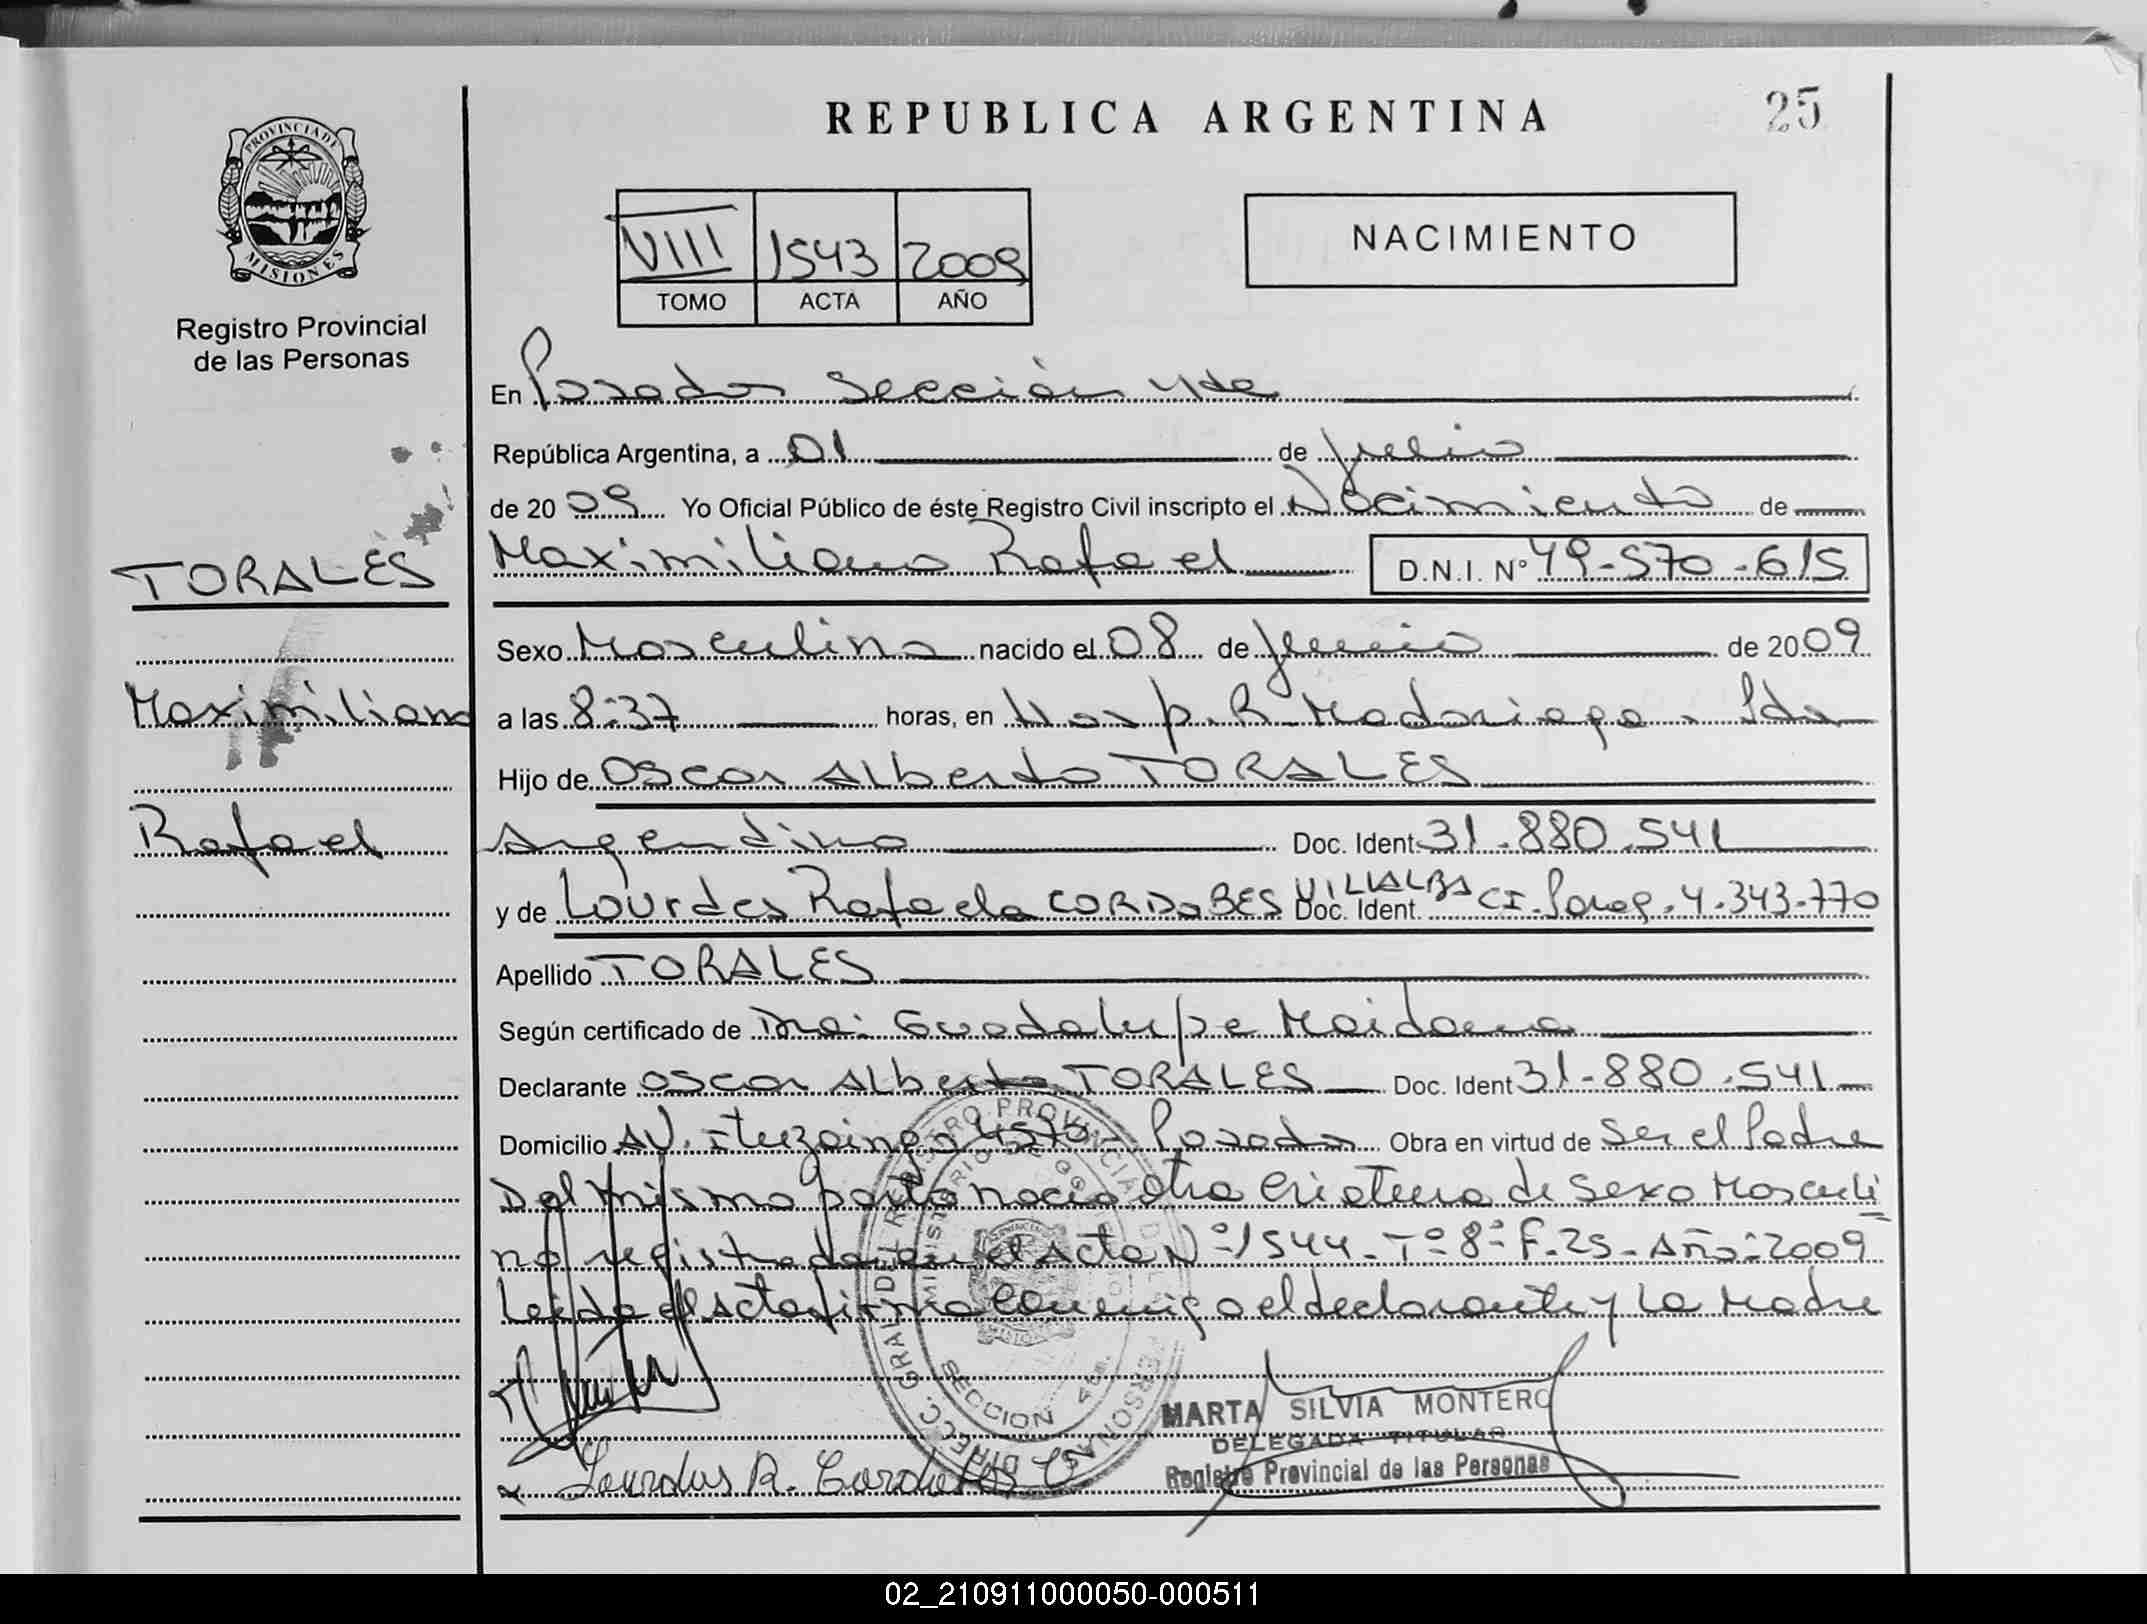 REPUBLICA ARGENTINA
25
PROVINCIA DE
MISIONES
Registro Provincial
de las Personas
VIII 1543 2009
TOMO ACTA AÑO
NACIMIENTO
En Posadas Sección 4ta
República Argentina, a 01 de julio
de 2009 Yo Oficial Público de éste Registro Civil inscripto el Nacimiento de
TORALES
Maximiliano Rafael D.N.I. Nº 49-570-615
Sexo Masculino nacido el 08 de junio de 2009
Maximiliano
a las 8:37 horas, en Hosp. R. Madariaga - Pdas
Hijo de Oscar Alberto TORALES
Rafael
Argentino Doc. Ident. 31.880.541
y de Lourdes Rafaela CORDOBES VILLALBA Doc. Ident. CI. Parag. 4.343.770
Apellido TORALES
Según certificado de Dra: Guadalupe Maidana
Declarante Oscar Alberto TORALES Doc. Ident 31-880.541
Domicilio AV. Ituzaingo 4575 - Posadas Obra en virtud de Ser el Padre
Del mismo parto nacio otra criatura de Sexo Masculi
no registrada en el Acta Nº 1544 - Tº 8º F. 25 - Año: 2009
Leida el Acta firma conmigo el declarante y La Madre
DIRECC. GRAL. DEL REGISTRO PROVINCIAL DE LAS PERSONAS
SECCION 4ta.
MISIONES
MARTA SILVIA MONTERO
DELEGADA TITULAR
Registro Provincial de las Personas
x Lourdes R. Cordobes
02_210911000050-000511